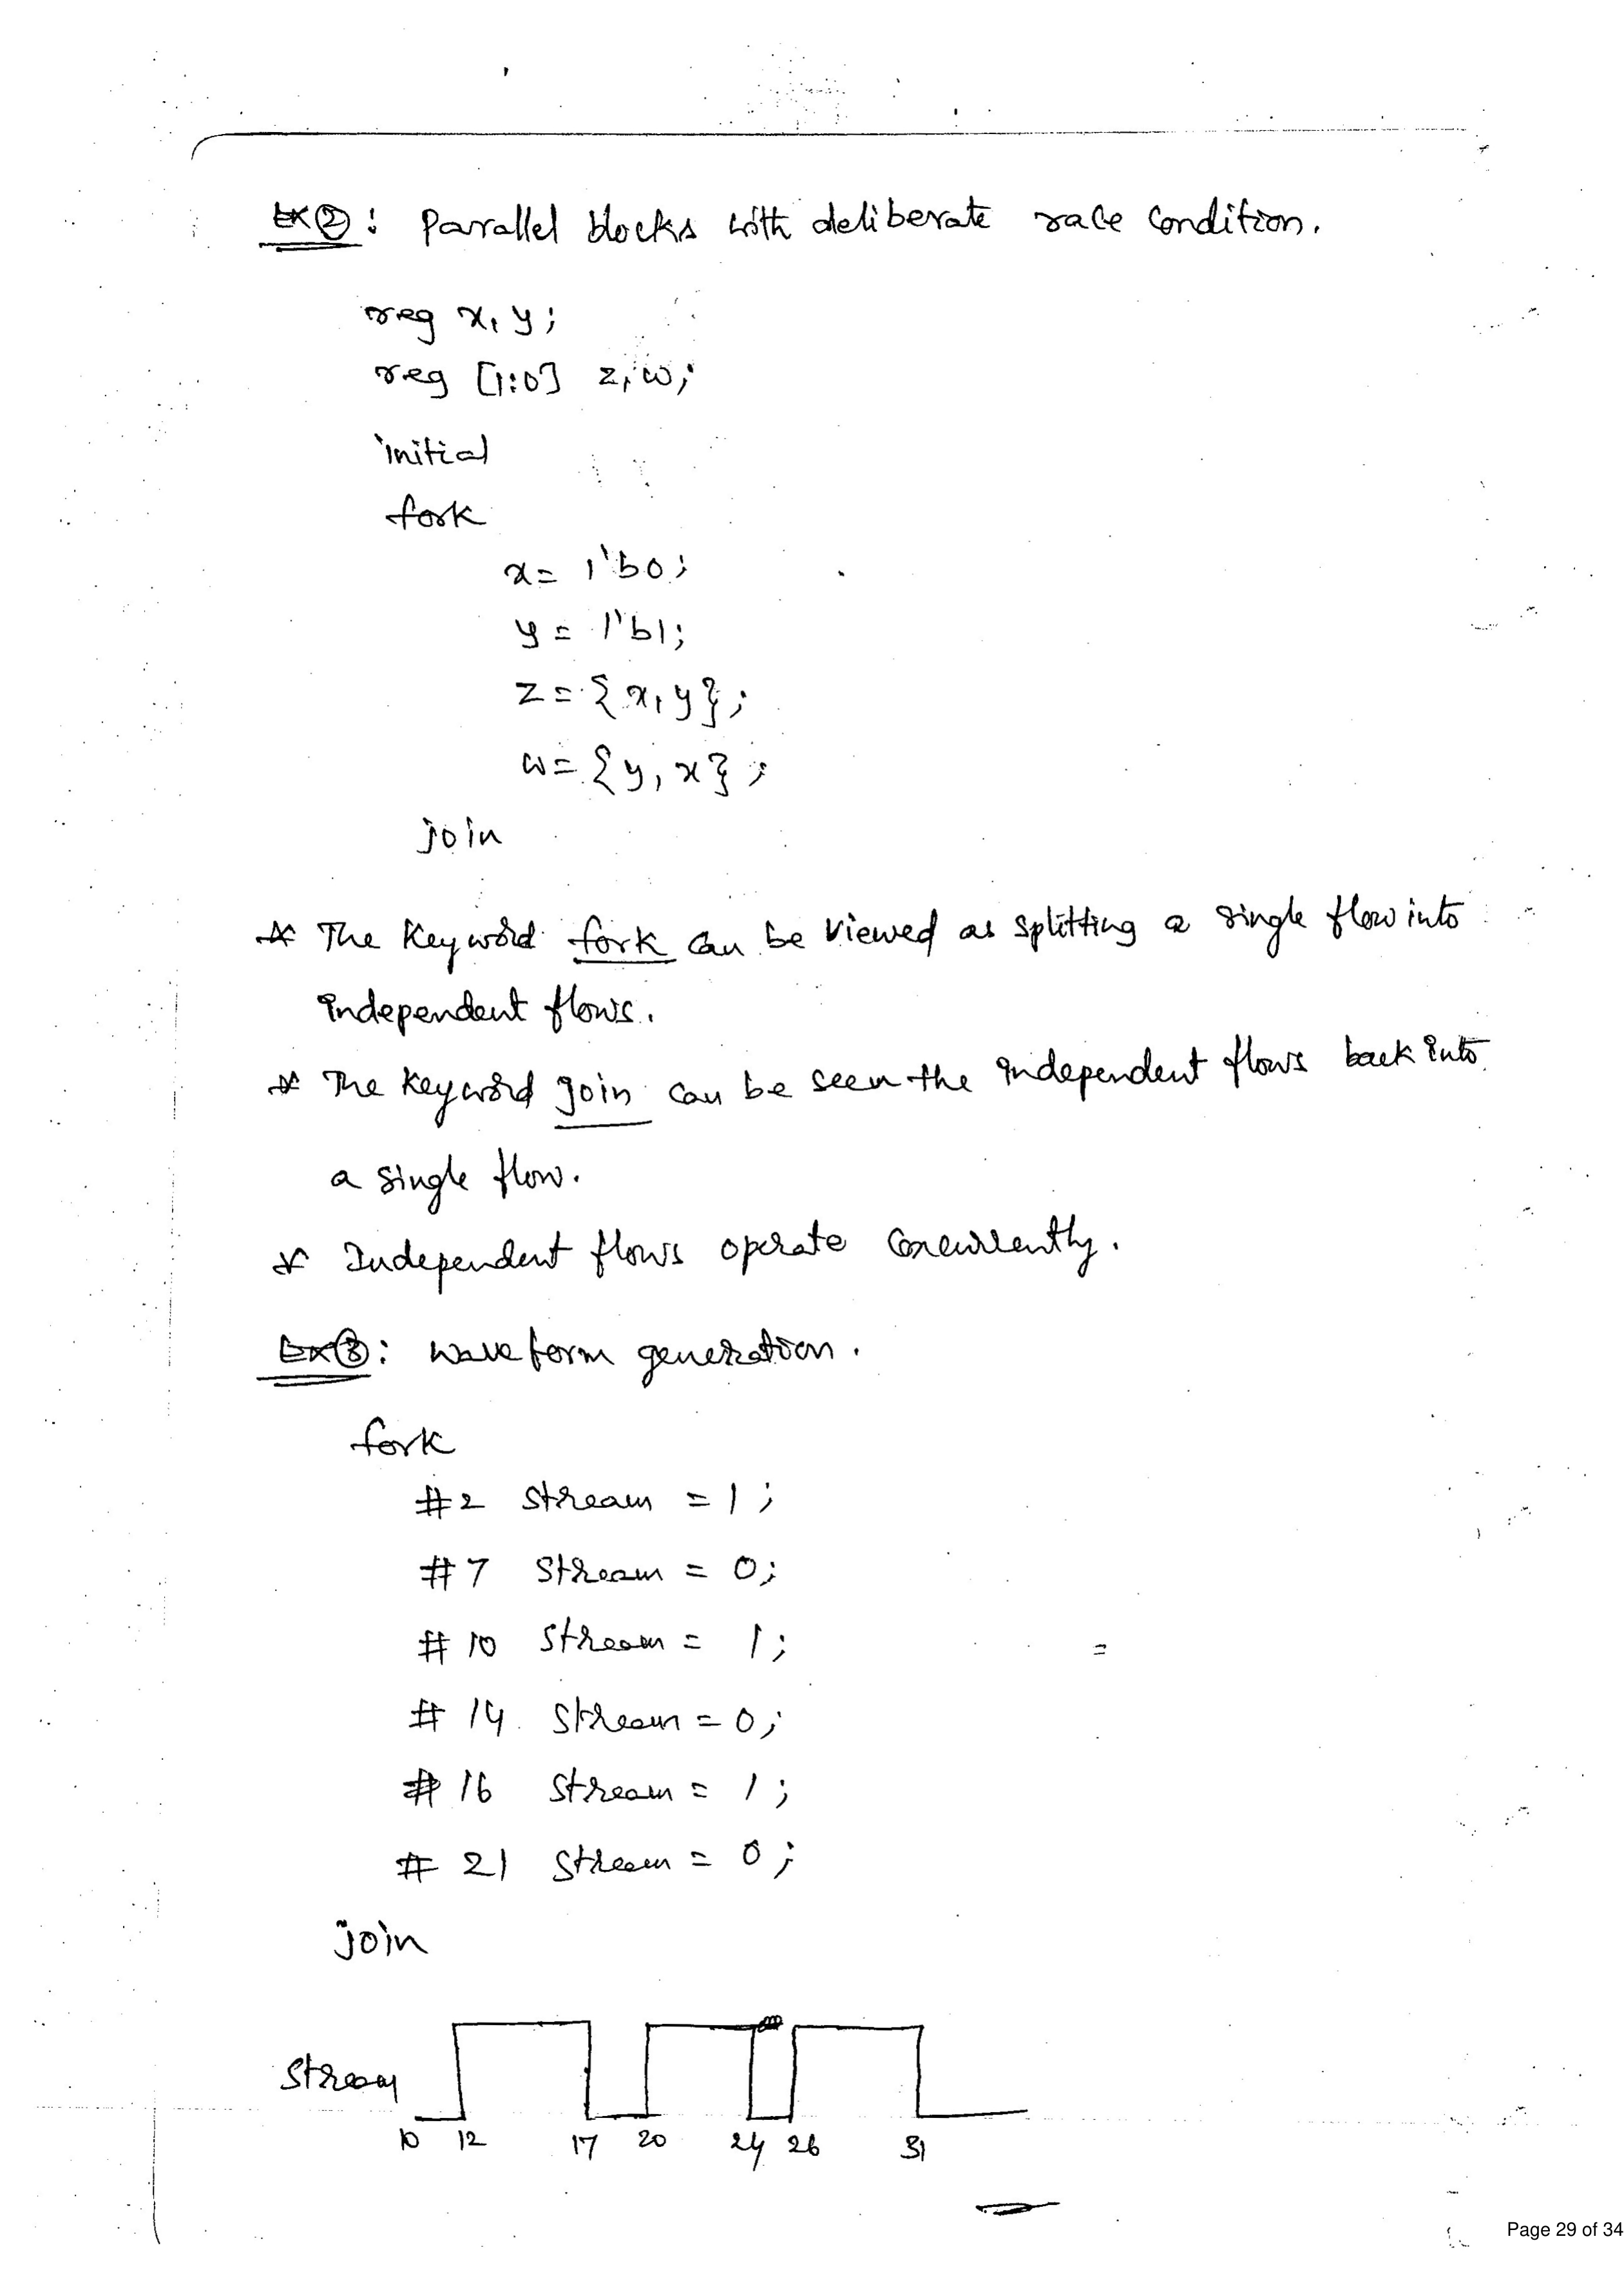 Ex②: Parallel blocks with deliberate race condition.
reg x, y;
reg [1:0] z, w;
initial
fork
x = 1'b0;
y = 1'b1;
z = {x, y};
w = {y, x};
join
* The keyword fork can be viewed as splitting a single flow into
independent flows.
* The keyword join can be seen the independent flows back into
a single flow.
* Independent flows operate concurrently.
Ex③: Wave form generation.
fork
#2 stream = 1;
#7 stream = 0;
#10 stream = 1;
#14 stream = 0;
#16 stream = 1;
#21 stream = 0;
join
Stream
10 12 17 20 24 26 31
Page 29 of 34